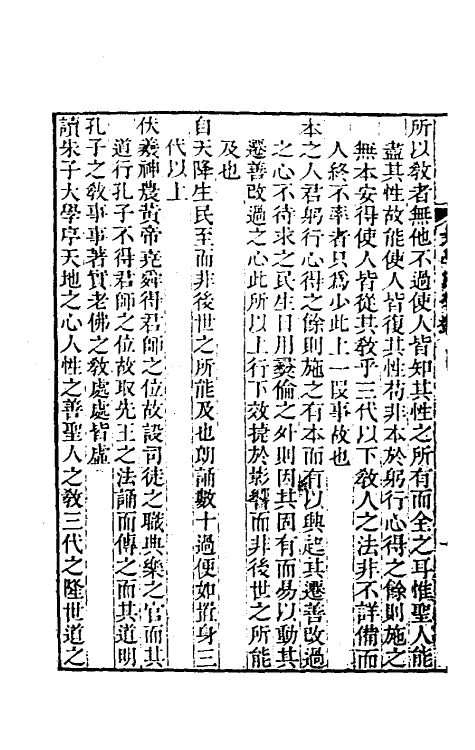 所以敎者無他不過使人皆知其性之所有而全之耳惟聖人能
盡其性故能使人皆復其性苟非本於躬行心得之餘則施之
無本安得使人皆從其敎乎三代以下敎人之法非不詳備而
人終不率者只爲少此上一叚事故也
本之人君躬行心得之餘則施之有本而有以興起其遷善改過
之心不待求之民生日用彛倫之外則因其固有而易以動其
遷善改過之心此所以上行下效捷於影響而非後世之所能
及也
自天降生民至而非後世之所能及也朗誦數十過便如置身三
代以上
伏羲神農黃帝堯舜得君師之位故設司徒之職典樂之官而其
道行孔子不得君師之位故取先王之法誦而傳之而其道明
孔子之敎事事著實老佛之敎處處皆虛
讀朱子大學序天地之心人性之善聖人之敎三代之隆世道之